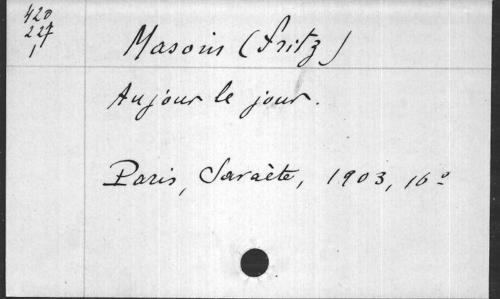 420
227
1
Masoin (Fritz)
Au jour le jour.
Paris, Savaète, 1903, 16º